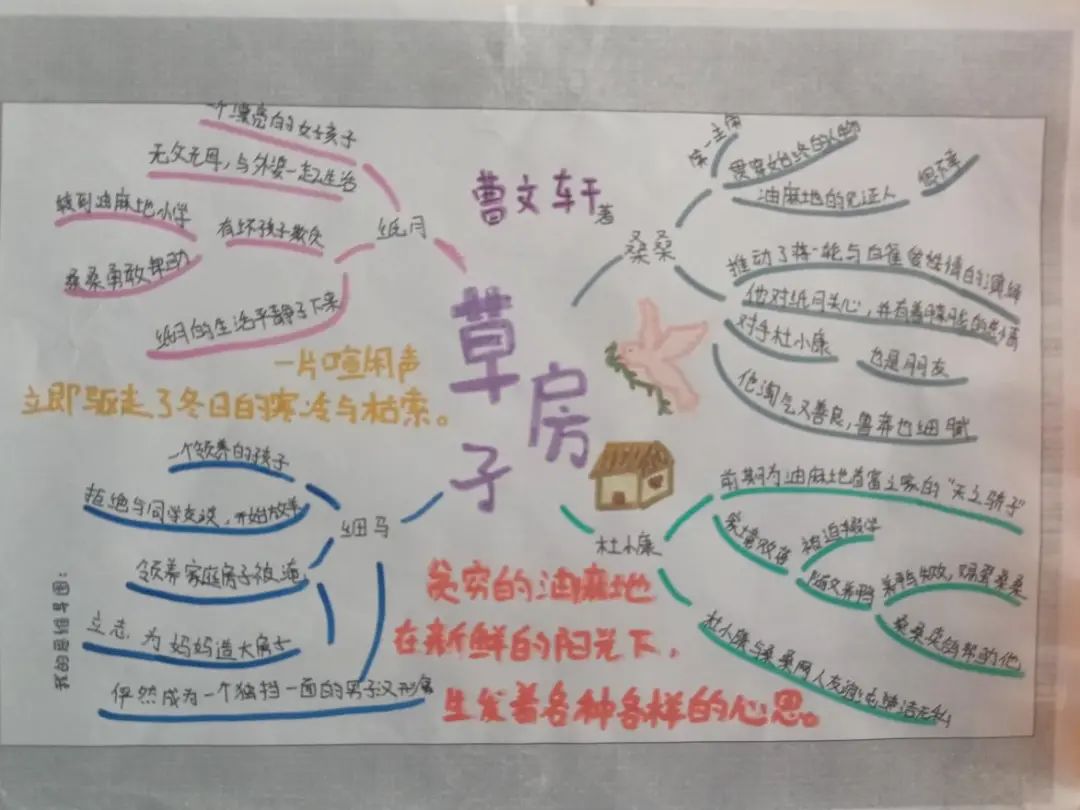 曹文轩
著
草房子
纸月
一个漂亮的女孩子
无父无母，与外婆一起生活
有坏孩子欺负
转到油麻地小学
桑桑勇敢帮助
纸月的生活平静了下来
桑桑
第一主角
贯穿始终的人物
油麻地的见证人
但不幸
推动了蒋一轮与白雀爱情的演绎
他对纸月关心，并有着朦胧的
对手杜小康
也是朋友
他淘气又善良，鲁莽也细腻
一片喧闹声
立即驱走了冬日的寒冷与枯索。
细马
一个领养的孩子
拒绝与同学交谈，开始放羊
领养家庭房子被淹
立志，为妈妈造大房子
俨然成为一个独挡一面的男子汉形象
杜小康
前期为油麻地首富之家的“天之骄子”
家境败落
被迫辍学
随父养鸭
养鸭失败
桑桑卖鸽帮助他
杜小康与桑桑两人友谊纯洁无私
贫穷的油麻地
在新鲜的阳光下，
生发着各种各样的心思。
我的思维导图：